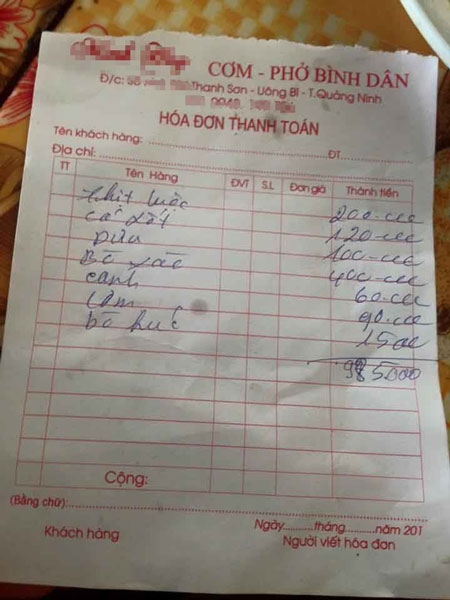 CƠM - PHỞ BÌNH DÂN
Đ/c: 58 Thanh Sơn - Uông Bí - T.Quảng Ninh
HÓA ĐƠN THANH TOÁN
Tên khách hàng: ĐT
Địa chỉ:
TT Tên Hàng ĐVT S.L Đơn giá Thành tiền
thịt luộc 200.000
120.000
Dưa 100.000
Bò xào 400.000
canh 60.000
cơm 90.000
bò húc 15000
985000
Cộng:
(Bằng chữ):
Ngày tháng năm 201
Khách hàng Người viết hóa đơn